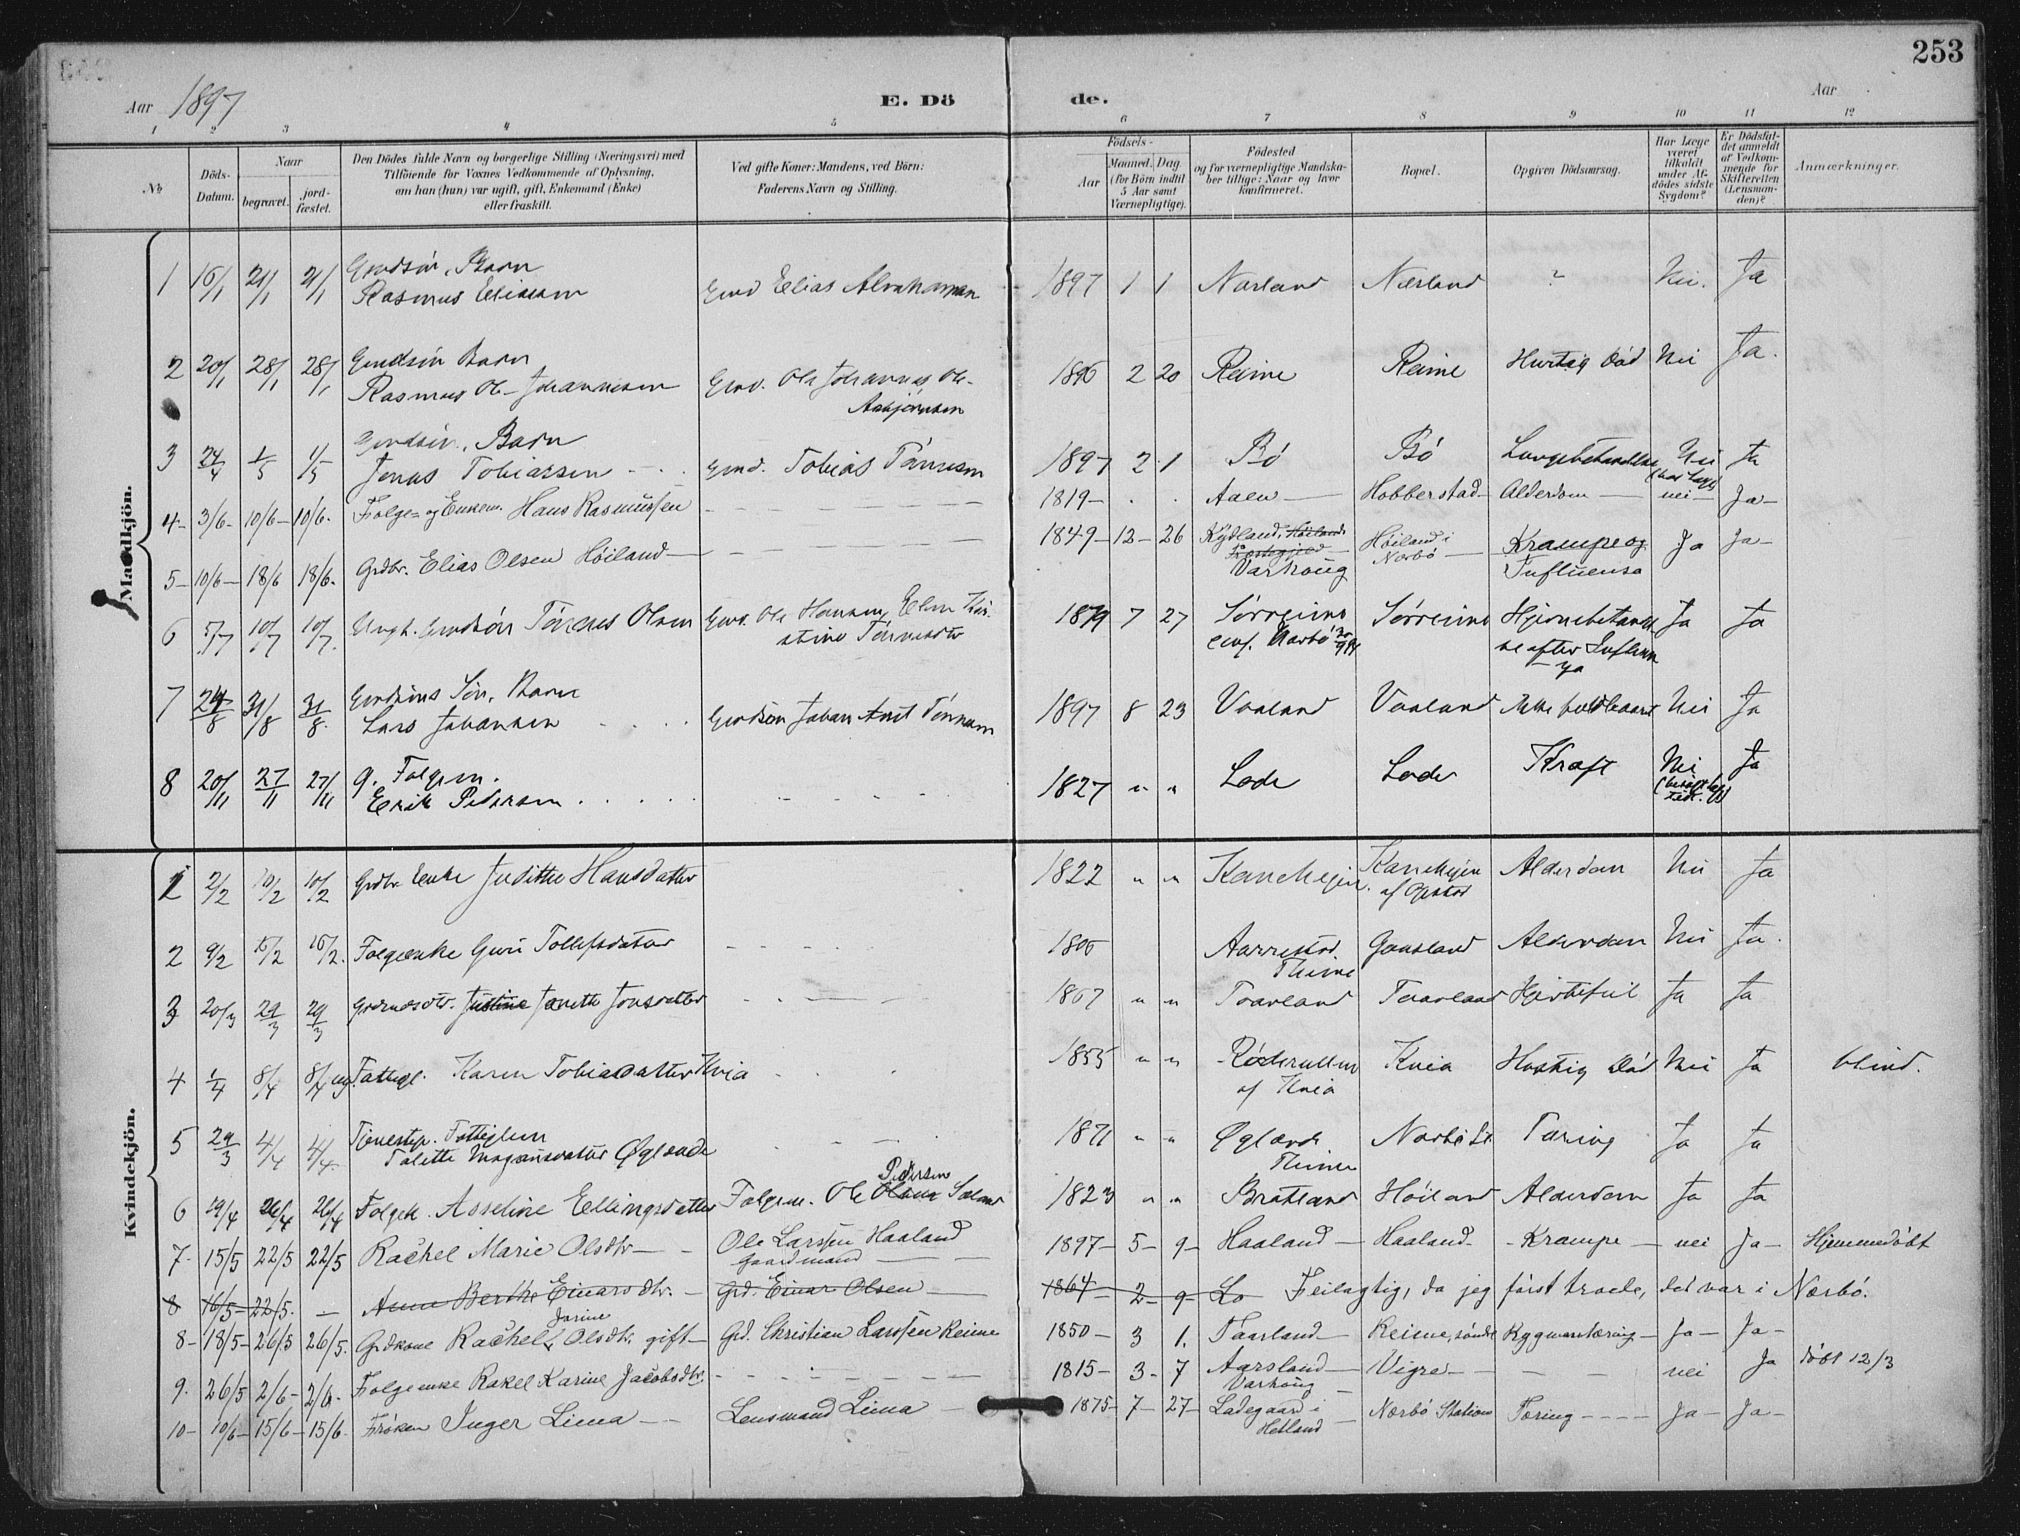 253
Aar 1897
E. Dö de.
Aar
1 2 3 4 5 6 7 8 9 10 11 12
No
Döds-Datum.
Naar
begravet.
jord-fæstet.
Den Dödes fulde Navn og borgerlige Stilling (Næringsvei) med
Tilföiende for Voxnes Vedkommende af Oplysning,
om han (hun) var ugift, gift, Enkemand (Enke)
eller fraskilt.
Ved gifte Koner: Mandens, ved Börn:
Faderens Navn og Stilling.
Födsels-
Aar
Maaned. Dag.
(for Börn indtil
5 Aar samt
Værnepligtige).
Födested
og for værnepligtige Mandska-
ber tillige: Naar og hvor
konfirmeret.
Bopæl.
Opgiven Dödsaarsag.
Har Læge
været
tilkaldt
under Af-
dödes sidste
Sygdom?
Er Dödsfal-
det anmeldt
af Vedkom-
mende for
Skifteretten
(Lensman-
den)?
Anmærkninger.
Mandkjön.
1 16/1 21/1 21/1 Gmdsön, Barn
Rasmus Eliassen Gmd Elias Abrahamsen 1897 1 1 Nærland Nærland ? Nei. Ja
2 20/1 28/1 28/1 Gmdsön Barn
Rasmus Ole Johannesen Gmd. Ole Johannes Ole
Asbjørnsen 1896 2 20 Reime Reime Hurtig Död Nei Ja.
3 24/4 1/5 1/5 Gmdsön, Barn
Jonas Tobiassen Gmd. Tobias Tönnesen 1897 2 1 Bö Bö Nei Ja
4- 3/6- 10/6- 10/6. Folge- og Enkem. Hans Rasmussen 1819- Aaen Hobberstad- Alderdom nei- Ja-
5- 10/6- 18/6 18/6. Grdbr. Elias Olsen Höiland 1849- 12- 26 Kydland,
Varhoug Höiland i
Nærbö Krampe og
Influensa Ja Ja-
6 5/7 10/7 10/7. Ungk. Gmdsön Tönnes Olsen Gmd. Ole Hansen, Elen Kri-
stine Tönnesdtr 1879 7 27 Sörreime
conf. Nærbö Sörreime Hjernebetænd-
se efter Influen
za Ja Ja
7 24/8 31/8 31/8. Gmdsöns Sön, Barn
Lars Johansen Gmdsön Johan Tönnesen 1897 8 23 Vaaland Vaaland Nei Ja
8 20/11 27/11 27/11 g. Folgem.
Erik Pedersen 1827 " " Lode Lode Kræft Nei Ja
Kvindekjön.
1 2/2 10/2 10/2 Grdbr. Enke Judithe Hansdatter 1822 " " Kanehejen. Kanehejen
af Opstad Alderdom Nei Ja
2 9/2 15/2 15/2. Folgeenke Guri Tollefsdatter 1806 Aarrestad.
Thime Gausland Alderdom Nei Ja.
3 20/3 29/3 29/3 Janette Jonsdatter 1867 " " Taarland Taarland Hjertefeil Ja Ja
4 1/4 8/4 8/4 ug. Fattigl. Karen Tobiasdatter Kvia 1855 " "
af Kvia Kvia Hastig Död Nei Ja blind.
5 29/3 4/4 4/4 Tjenestep. Fattiglem
Talette Magnusdatter Öglænde 1871 " " Öglænde
Thime Nærbö St. Tæring Ja Ja
6 19/4 26/4 26/4 Folgek. Asseline Ellingsdatter Folgem. Ole Olsen Pedersen 1823 " " Bratland Höiland Alderdom Ja Ja
7- 15/5 22/5 22/5 Rachel Marie Olsdtr Ole Larssen Haaland
Gaardmand 1897- 5- 9- Haaland- Haaland- Krampe nei Ja- Hjemmedöbt
8 16/5- 22/5. Anna Berthe Einarsdtr. Grd. Einar Olsen 1864 2- 9- Lo Feilagtig, da jeg först troede, det var i Nærbö.
8- 18/5- 26/5 26/5. Grdkone Rachel Jorine Olsdtr. gift- Grd. Christian Larssen Reime 1850- 3 1. Taarland- Reime, söndre Rygmarvtæring- Ja- Ja-
9. 26/5 2/6- 2/6. Folgeenke Rakel Karine Jacobsdtr. 1815- 3- 7 Aarsland
Varhoug Vigre- nei Ja döbt 12/3
10- 10/6- 15/6- 15/6. Fröken Inger Lima Lensmand Lima 1875- 7- 27- Ladegaard i
Hetland Nærbö Station Tæring- Ja- Ja-